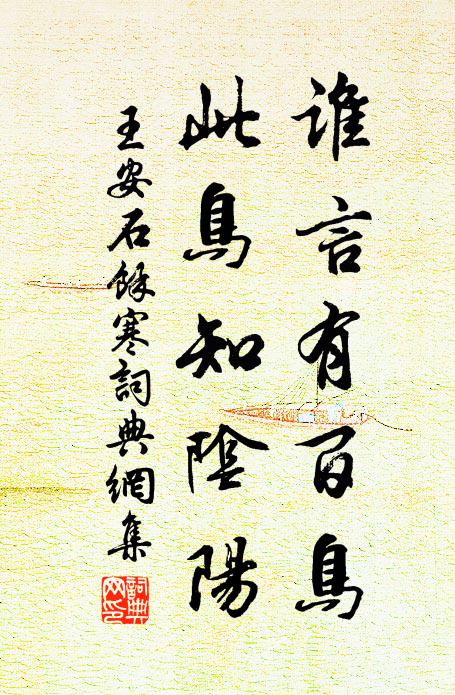 誰言有百鳥
此鳥知陰陽
王安石餘寒詞典網集
詞典
网印